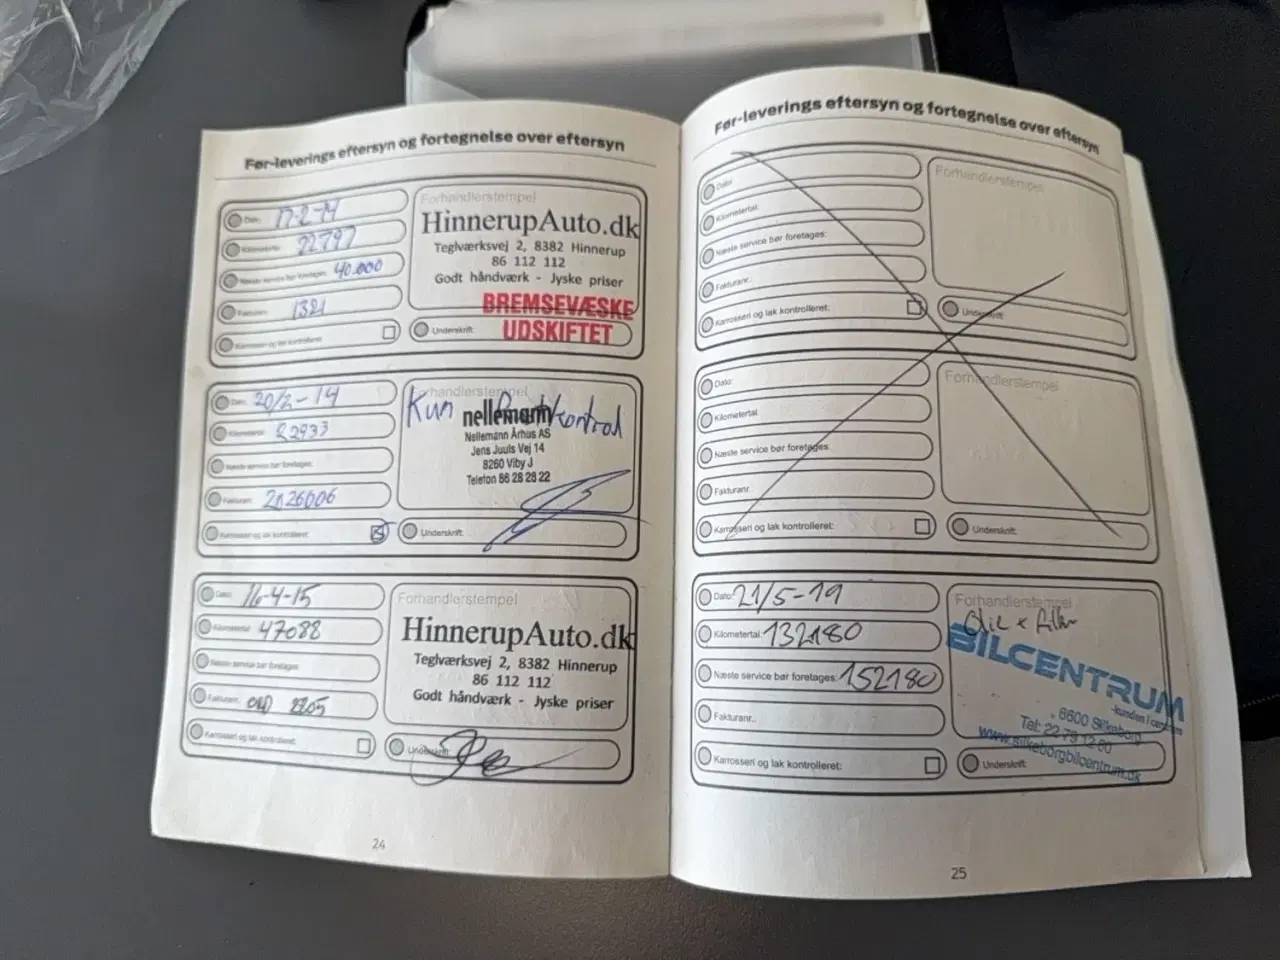 Før-leverings eftersyn og fortegnelse over eftersyn
Dato: 17-2-14
Kilometertal: 22797
Næste service bør foretages: 40.000
Fakturanr.: 1321
Karrosseri og lak kontrolleret:
Forhandlerstempel
HinnerupAuto.dk
Teglværksvej 2, 8382 Hinnerup
86 112 112
Godt håndværk - Jyske priser
BREMSEVÆSKE
UDSKIFTET
Underskrift:
Dato: 20/2-14
Kilometertal: 22933
Næste service bør foretages:
Fakturanr.: 2126006
Karrosseri og lak kontrolleret:
Forhandlerstempel
Kun kontrol
nellemann
Nellemann Århus AS
Jens Juuls Vej 14
8260 Viby J
Telefon 86 28 28 22
Underskrift:
Dato: 16-4-15
Kilometertal: 47088
Næste service bør foretages:
Fakturanr.: 2205
Karrosseri og lak kontrolleret:
Forhandlerstempel
HinnerupAuto.dk
Teglværksvej 2, 8382 Hinnerup
86 112 112
Godt håndværk - Jyske priser
Underskrift:
24
Før-leverings eftersyn og fortegnelse over eftersyn
Dato:
Kilometertal:
Næste service bør foretages:
Fakturanr.:
Karrosseri og lak kontrolleret:
Forhandlerstempel
Underskrift:
Dato:
Kilometertal:
Næste service bør foretages:
Fakturanr.
Karrosseri og lak kontrolleret:
Forhandlerstempel
Underskrift:
Dato: 21/5-19
Kilometertal: 132180
Næste service bør foretages: 152180
Fakturanr.:
Karrosseri og lak kontrolleret:
Forhandlerstempel
Olie + filter
BILCENTRUM
- kunden i centrum
8600 Silkeborg
Tel: 22 79 12 60
www.silkeborgbilcentrum.dk
Underskrift:
25